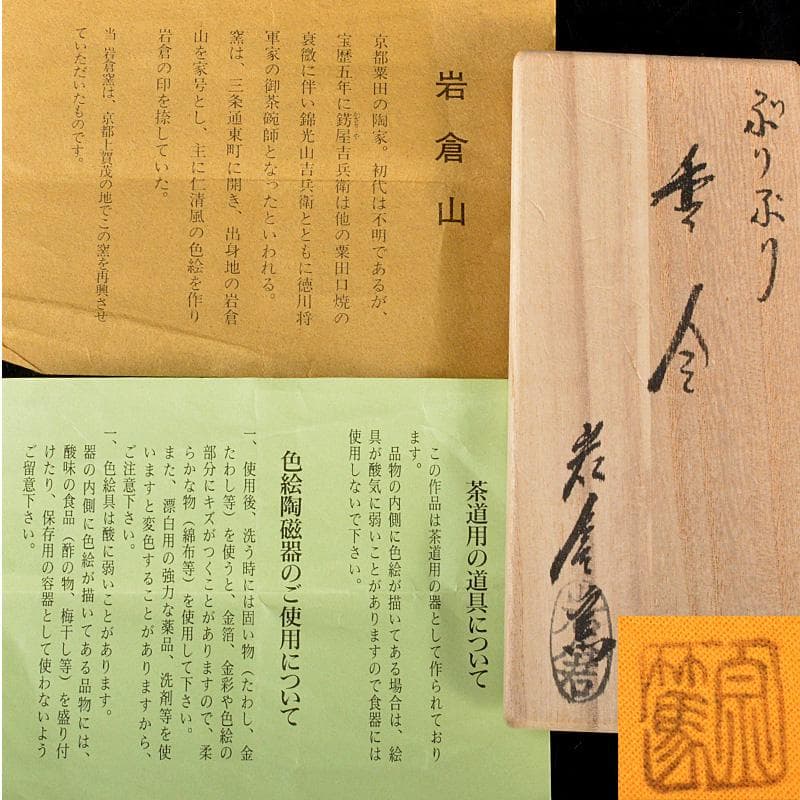 岩倉山
京都粟田の陶家。初代は不明であるが、
宝歴五年に錺屋吉兵衛は他の粟田口焼の
衰微に伴い錦光山吉兵衛とともに徳川将
軍家の御茶碗師となったといわれる。
窯は、三条通東町に開き、出身地の岩倉
山を家号とし、主に仁清風の色絵を作り
岩倉の印を捺していた。
当 岩倉窯は、京都上賀茂の地でこの窯を再興させ
ていただいたものです。
ぶりぶり
香合
岩倉窯
茶道用の道具について
この作品は茶道用の器として作られており
ます。
品物の内側に色絵が描いてある場合は、絵
具が酸気に弱いことがありますので食器には
使用しないで下さい。
色絵陶磁器のご使用について
一、使用後、洗う時には固い物（たわし、金
たわし等）を使うと、金箔、金彩や色絵の
部分にキズがつくことがありますので、柔
らかな物（綿布等）を使用して下さい。
また、漂白用の強力な薬品、洗剤等を使
いますと変色することがありますから、
ご注意下さい。
一、色絵具は酸に弱いことがあります。
器の内側に色絵が描いてある品物には、
酸味の食品（酢の物、梅干し等）を盛り付
けたり、保存用の容器として使わないよう
ご留意下さい。